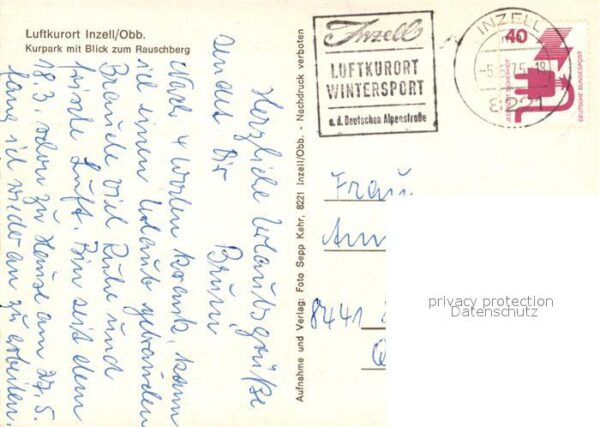 Luftkurort Inzell/Obb.
Kurpark mit Blick zum Rauschberg
Herzliche Urlaubsgrüße
sendet Dir
Bruni
Nach 4 Wochen krank, kann
ich einen Urlaub gebrauchen
Brauche viel Ruhe und
frische Luft. Bin seit dem
18.3 schon zu Hause am 27.5.
fang ich wieder an zu arbeiten.
Aufnahme und Verlag: Foto Sepp Kehr, 8221 Inzell/Obb. - Nachdruck verboten
Inzell
LUFTKURORT
WINTERSPORT
a.d. Deutschen Alpenstraße
INZELL
8221
40
DEUTSCHE BUNDESPOST
Frau
8441
privacy protection
Datenschutz